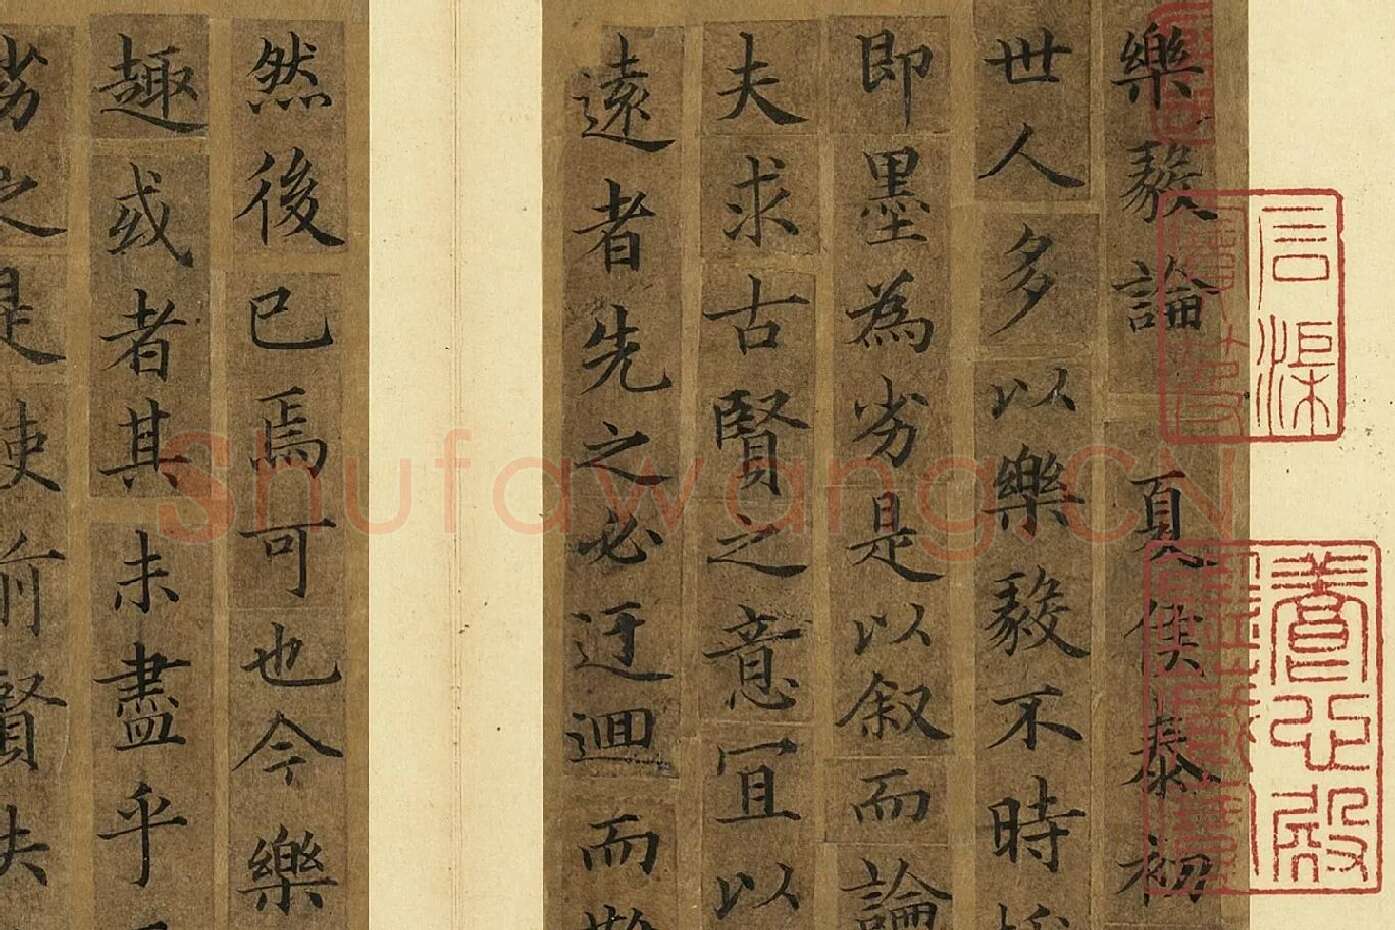 樂毅論 夏侯泰初
世人多以樂毅不時
即墨為劣是以叙而論
夫求古賢之意宜以
遠者先之必迂迴而難
然後已焉可也今樂
趣或者其未盡乎
劣之是使前賢失
養心殿
Shufawang.CN